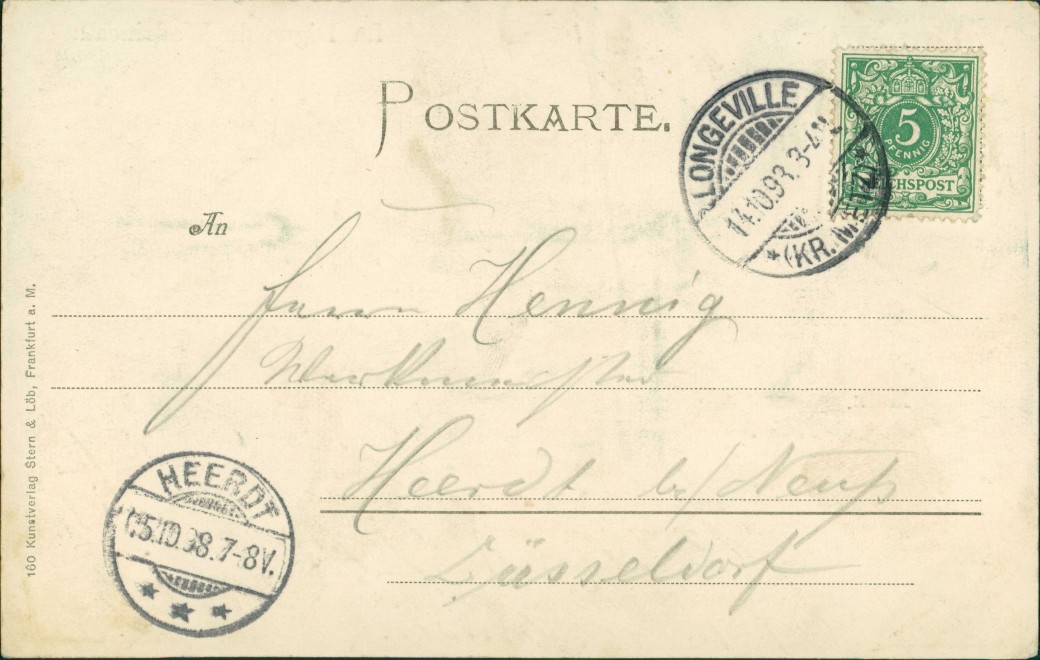 POSTKARTE.
LONGEVILLE
14.10.98. 3-4N.
*(KR. METZ)*
5
PFENNIG
REICHSPOST
An
Herrn Hennig
Werkmeister
Heerdt b/ Neuß
Düsseldorf
HEERDT
15.10.98. 7-8V.
160 Kunstverlag Stern & Löb, Frankfurt a. M.